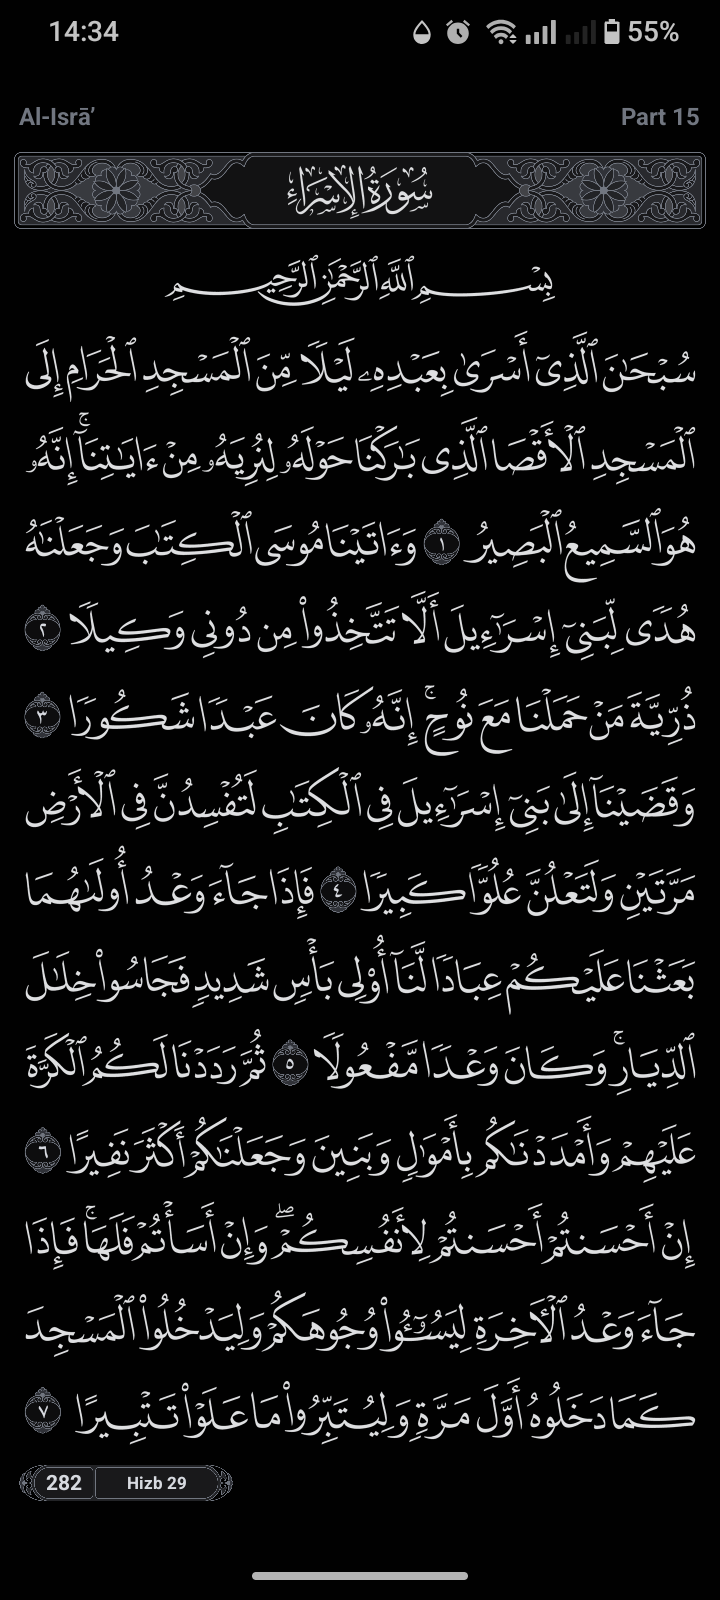 14:34 55%
Al-Isrā’ Part 15
سُورَةُ الإِسۡرَاءِ
بِسۡمِ ٱللَّهِ ٱلرَّحۡمَٰنِ ٱلرَّحِيمِ
سُبۡحَٰنَ ٱلَّذِيٓ أَسۡرَىٰ بِعَبۡدِهِۦ لَيۡلٗا مِّنَ ٱلۡمَسۡجِدِ ٱلۡحَرَامِ إِلَى
ٱلۡمَسۡجِدِ ٱلۡأَقۡصَا ٱلَّذِي بَٰرَكۡنَا حَوۡلَهُۥ لِنُرِيَهُۥ مِنۡ ءَايَٰتِنَآۚ إِنَّهُۥ
هُوَ ٱلسَّمِيعُ ٱلۡبَصِيرُ ١ وَءَاتَيۡنَا مُوسَى ٱلۡكِتَٰبَ وَجَعَلۡنَٰهُ
هُدٗى لِّبَنِيٓ إِسۡرَٰٓءِيلَ أَلَّا تَتَّخِذُواْ مِن دُونِي وَكِيلٗا ٢
ذُرِّيَّةَ مَنۡ حَمَلۡنَا مَعَ نُوحٍۚ إِنَّهُۥ كَانَ عَبۡدٗا شَكُورٗا ٣
وَقَضَيۡنَآ إِلَىٰ بَنِيٓ إِسۡرَٰٓءِيلَ فِي ٱلۡكِتَٰبِ لَتُفۡسِدُنَّ فِي ٱلۡأَرۡضِ
مَرَّتَيۡنِ وَلَتَعۡلُنَّ عُلُوّٗا كَبِيرٗا ٤ فَإِذَا جَآءَ وَعۡدُ أُولَىٰهُمَا
بَعَثۡنَا عَلَيۡكُمۡ عِبَادٗا لَّنَآ أُوْلِي بَأۡسٖ شَدِيدٖ فَجَاسُواْ خِلَٰلَ
ٱلدِّيَارِۚ وَكَانَ وَعۡدٗا مَّفۡعُولٗا ٥ ثُمَّ رَدَدۡنَا لَكُمُ ٱلۡكَرَّةَ
عَلَيۡهِمۡ وَأَمۡدَدۡنَٰكُم بِأَمۡوَٰلٖ وَبَنِينَ وَجَعَلۡنَٰكُمۡ أَكۡثَرَ نَفِيرًا ٦
إِنۡ أَحۡسَنتُمۡ أَحۡسَنتُمۡ لِأَنفُسِكُمۡۖ وَإِنۡ أَسَأۡتُمۡ فَلَهَاۚ فَإِذَا
جَآءَ وَعۡدُ ٱلۡأٓخِرَةِ لِيَسُـُٔواْ وُجُوهَكُمۡ وَلِيَدۡخُلُواْ ٱلۡمَسۡجِدَ
كَمَا دَخَلُوهُ أَوَّلَ مَرَّةٖ وَلِيُتَبِّرُواْ مَا عَلَوۡاْ تَتۡبِيرًا ٧
282 Hizb 29